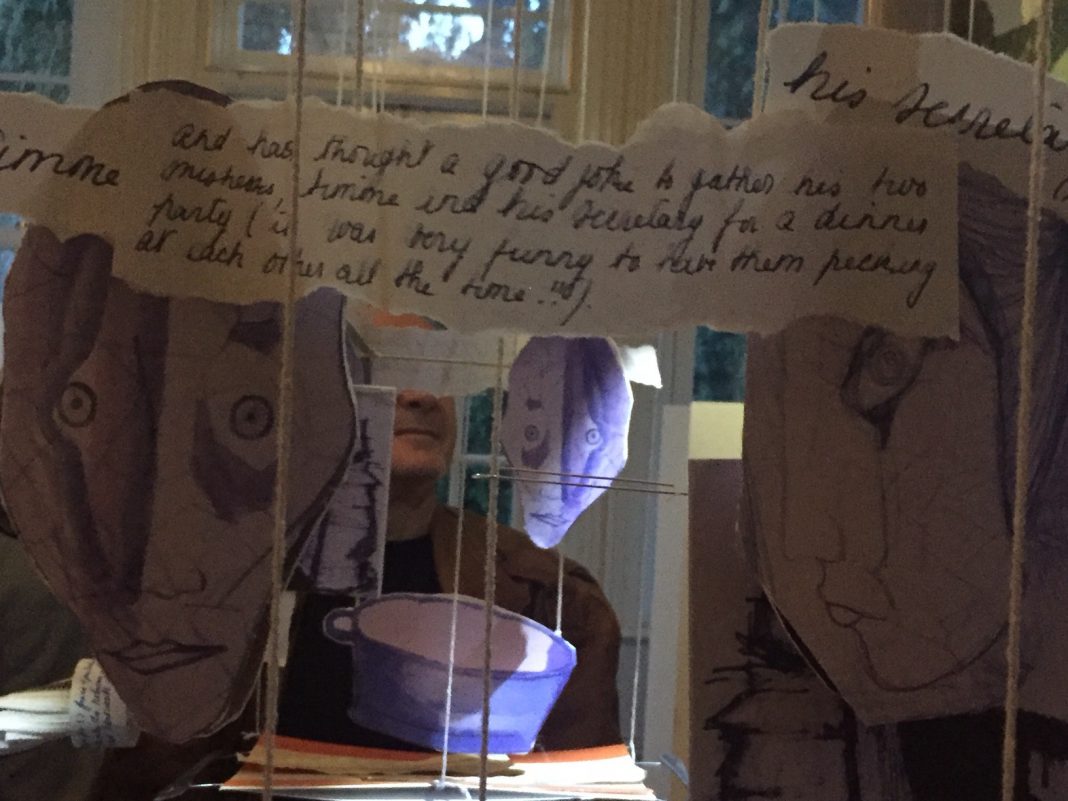 his secreta
Simone
and has thought a good joke to gather his two
mistresses, Simone and his secretary for a dinner
party ("it was very funny to have them pecking
at each other all the time..").